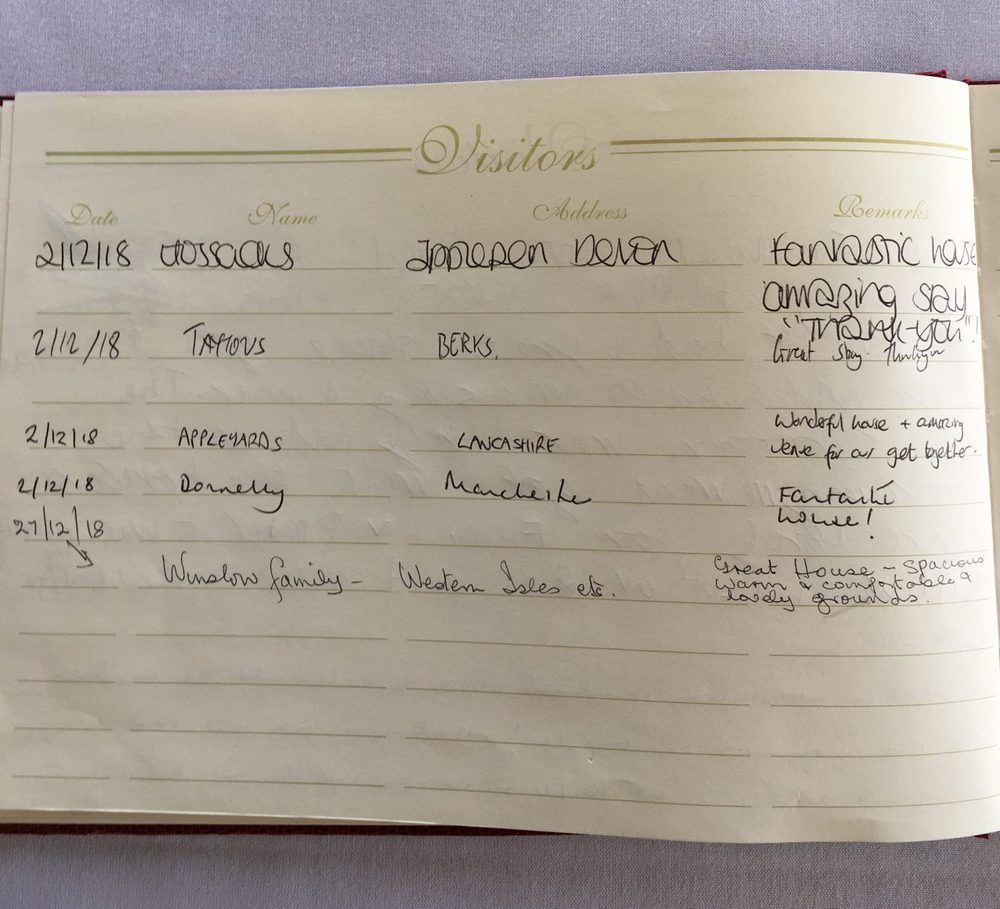 Visitors
Date Name Address Remarks
2/12/18 Devon Fantastic house
amazing stay
"Thank-you"!
2/12/18 BERKS. Great Stay.
2/12/18 APPLEYARDS LANCASHIRE Wonderful house + amazing
venue for our get together.
2/12/18 Donnelly Manchester Fantastic
house!
27/12/18
Winslow family - Western Isles etc. Great House - Spacious
warm & comfortable &
lovely grounds.